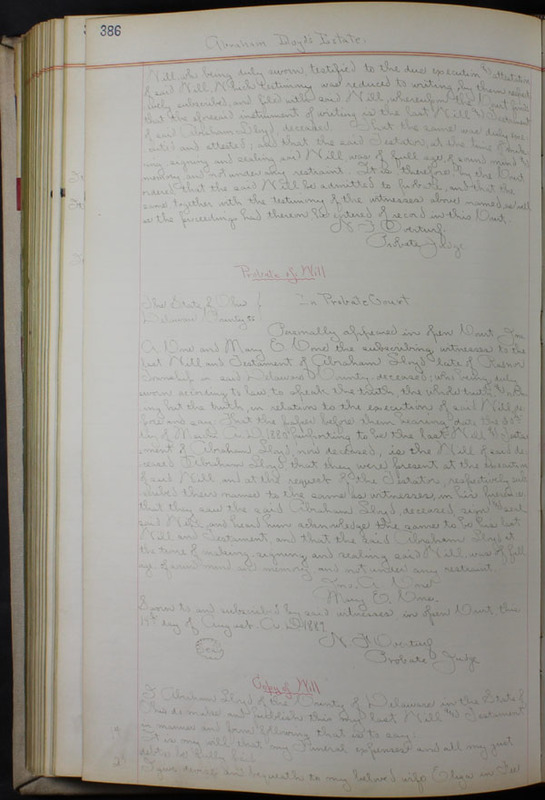 386
Abraham Lloyd's Estate.
Will, who being duly sworn, testified to the due execution & attestation
of said Will. Which testimony was reduced to writing, by them respect-
ively subscribed, and filed with said Will, whereupon the Court finds
that the aforesaid instrument of writing is the last Will & Testament
of said Abraham Lloyd deceased. That the same was duly exe-
cuted and attested; and that the said Testator, at the time of
signing and sealing said Will, was of full age, of sound mind &
memory and not under any restraint. It is therefore by the Court
ordered that the said Will be admitted to Probate, and that the
same together with the testimony of the witnesses above named, as well
as the proceedings had therein be entered of record in this Court.
N. F. Overturf.
Probate Judge
Probate of Will
The State of Ohio }
Delaware County ss }
In Probate Court
Personally appeared in open Court, Jno.
A. Cone and Mary E. Cone the subscribing witnesses to the
last Will and Testament of Abraham Lloyd late of
Township in said Delaware County, deceased; who being duly
sworn according to law to speak the truth, the whole truth & noth-
ing but the truth, in relation to the execution of said Will, de-
pose and say: That the paper before them bearing date the
day of March A.D. 1880 purporting to be the last Will & Testa-
ment of Abraham Lloyd, now deceased, is the Will of said de-
ceased Abraham Lloyd that they were present at the execution
of said Will and at the request of the Testator, respectively sub-
scribed their names to the same as witnesses, in his presence
that they saw the said Abraham Lloyd, deceased sign & seal
said Will, and heard him acknowledge the same to be his last
Will and Testament, and that the said Abraham Lloyd at
the time of making, signing and sealing said Will, was of full
age, of sound mind and memory and not under any restraint.
Jno. A. Cone
Mary E. Cone
Sworn to and subscribed by said witnesses in open Court, this
15th day of August A.D. 1887
N. F. Overturf
Seal
Probate Judge
Copy of Will
I Abraham Lloyd of the County of Delaware in the State of
Ohio do make and publish this my last Will & Testament
in manner and form following that is to say:
1st It is my will that my funeral expenses and all my just
debts be fully paid.
2d I give devise and bequeath to my beloved wife Eliza in